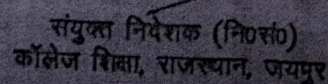 संयुक्त निदेशक (नि0सं0)
कॉलेज शिक्षा, राजस्थान, जयपुर